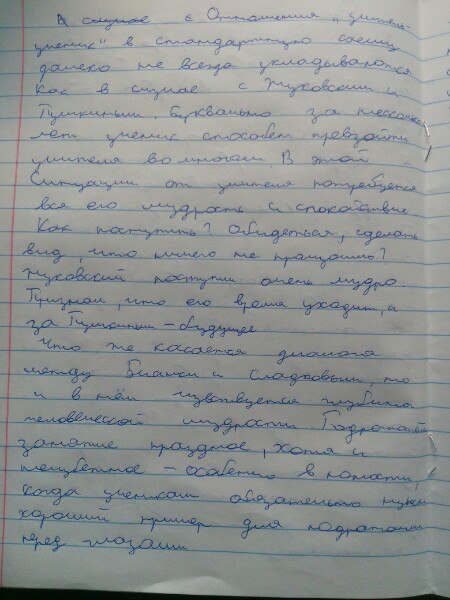 В случае с Отношения „учитель-
ученик" в стандартную схему
далеко не всегда укладываются
Как в случае с Жуковским и
Пушкиным. Буквально за несколько
лет ученик способен превзойти
учителя во многом В этой
ситуации от учителя потребуется
вся его мудрость и спокойствие
Как поступить? Обидеться, сделать
вид, что ничего не произошло?
Жуковский поступил очень мудро.
Признал, что его время уходит, а
за Пушкиным – будущее.
Что же касается диалога
между Бианки и Сладковым, то
и в нём чувствуется глубина
человеческой мудрости. Подражание
занятие праздное, хотя и
неизбежное – особенно в юности,
когда ученикам обязательно нужен
хороший пример для подражания
перед глазами